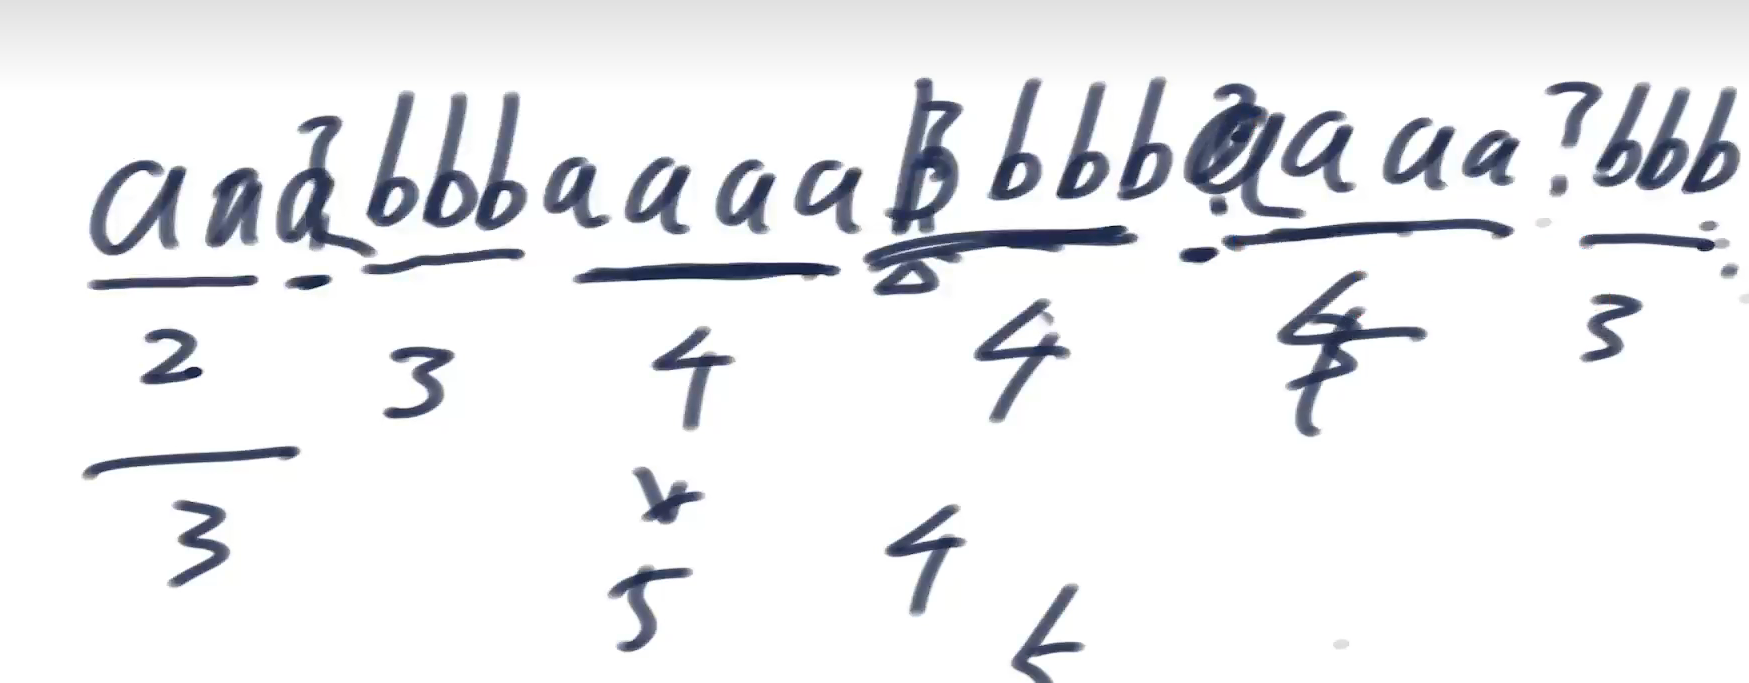 aa? bbb aaaa bbb aaa ? bbb
2 3 4 4 4 3
3
5 4